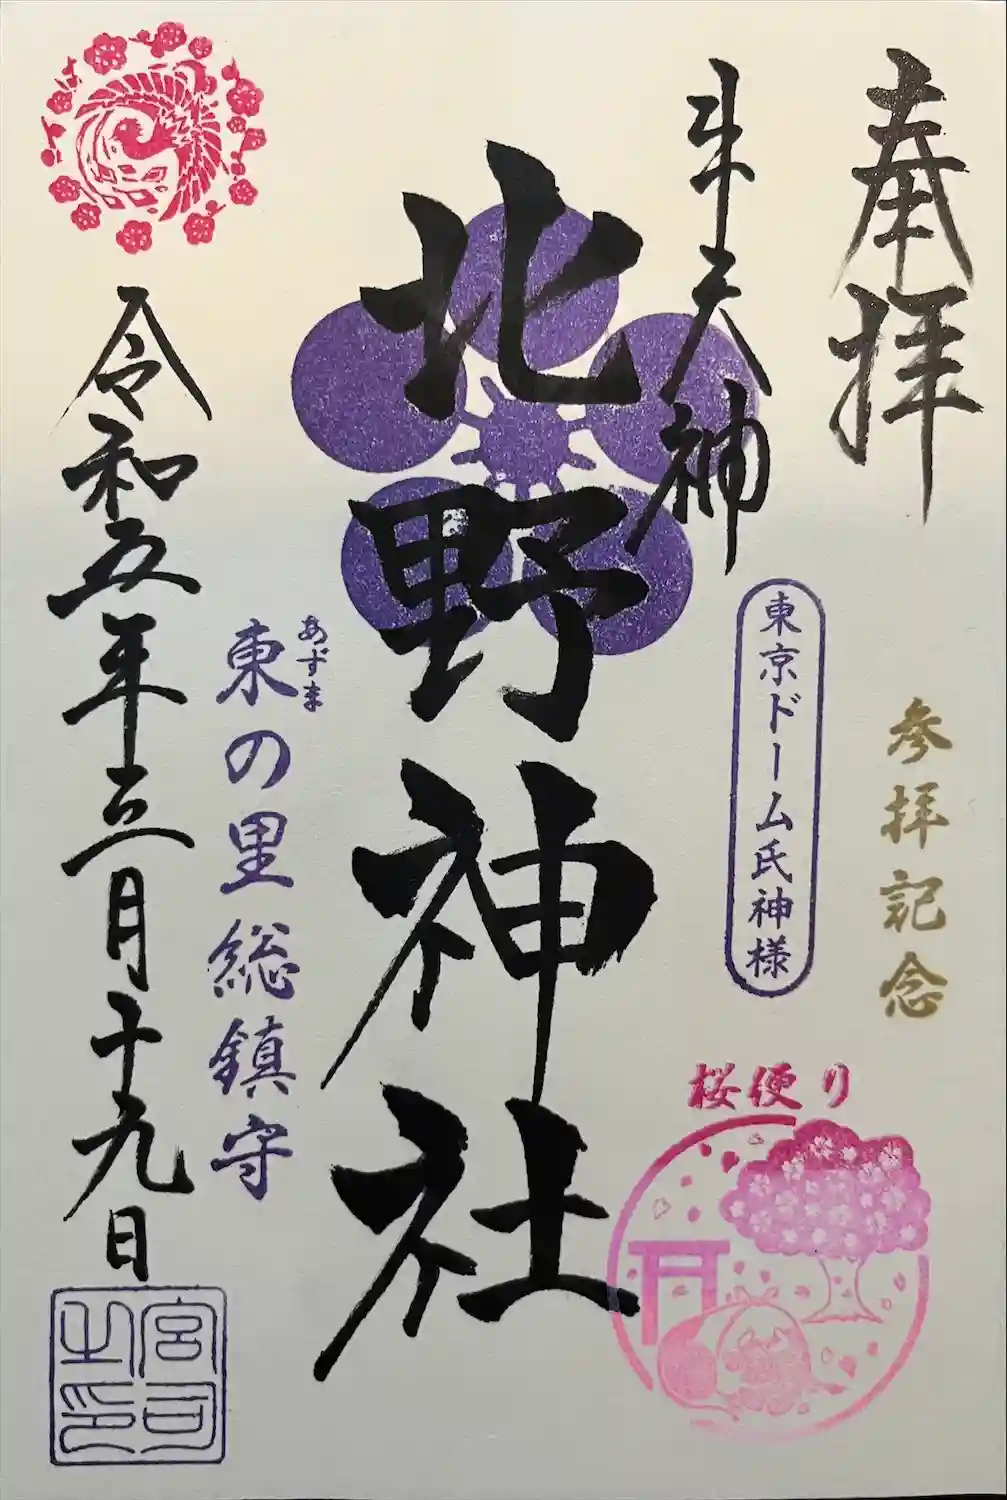 奉拝
参拝記念
桜便り
牛天神
東京ドーム氏神様
北野神社
あずま
東の里総鎮守
令和五年三月十九日
宮司之印